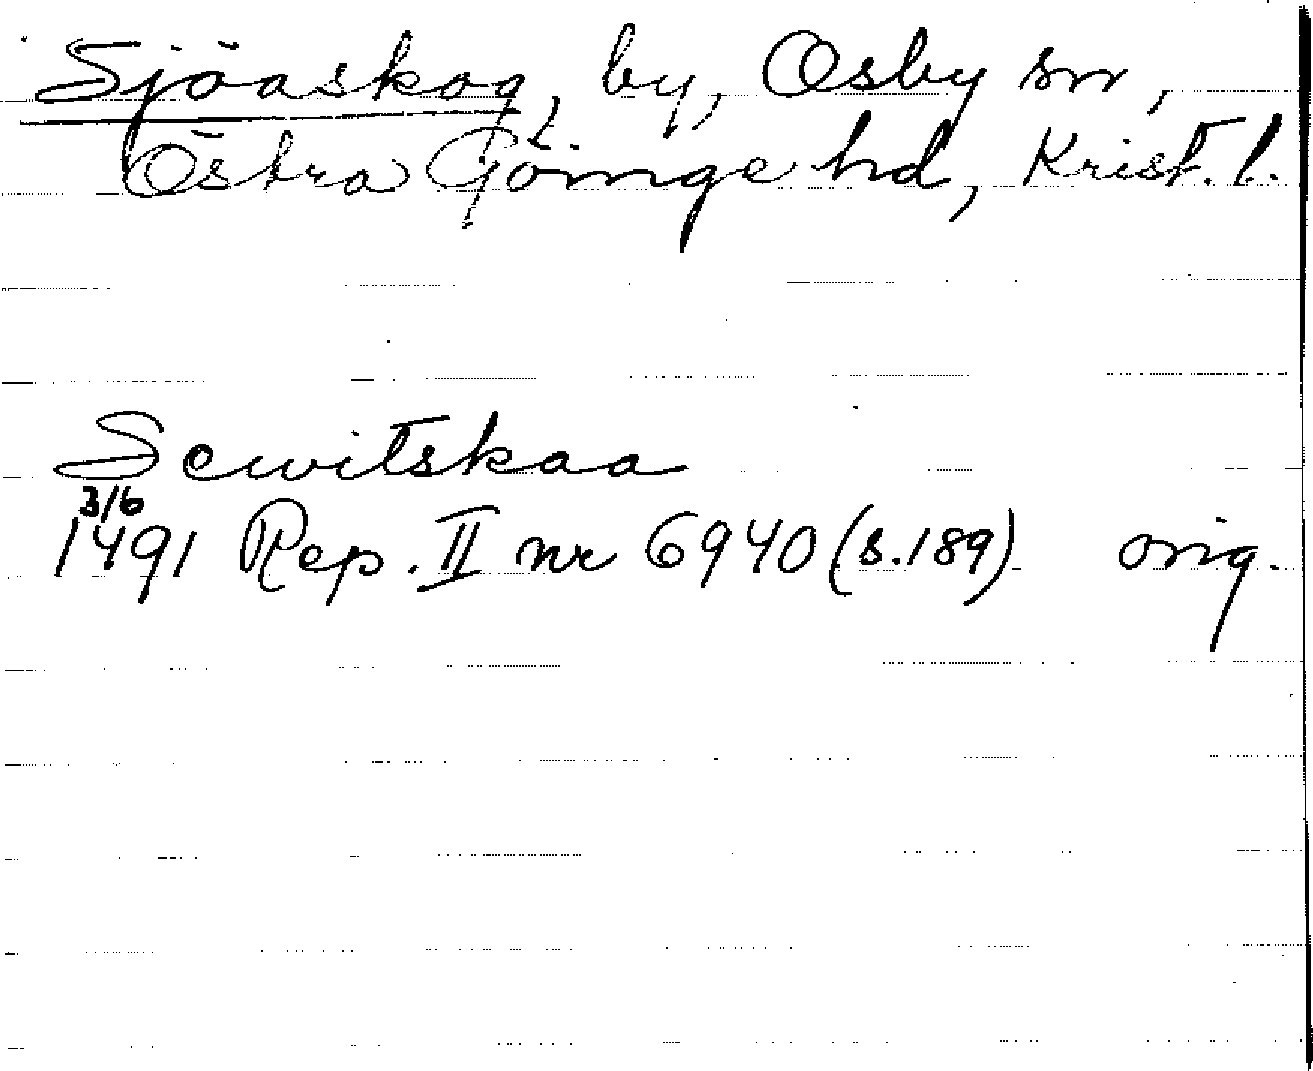 Sjöaskog, by, Osby sn,
Östra Göinge hd, Krist. l.
Sewitskaa
3/6
1491 Rep. II nr 6940 (s. 189) orig.